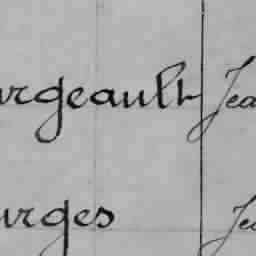 urgeault Jea
urges Jea